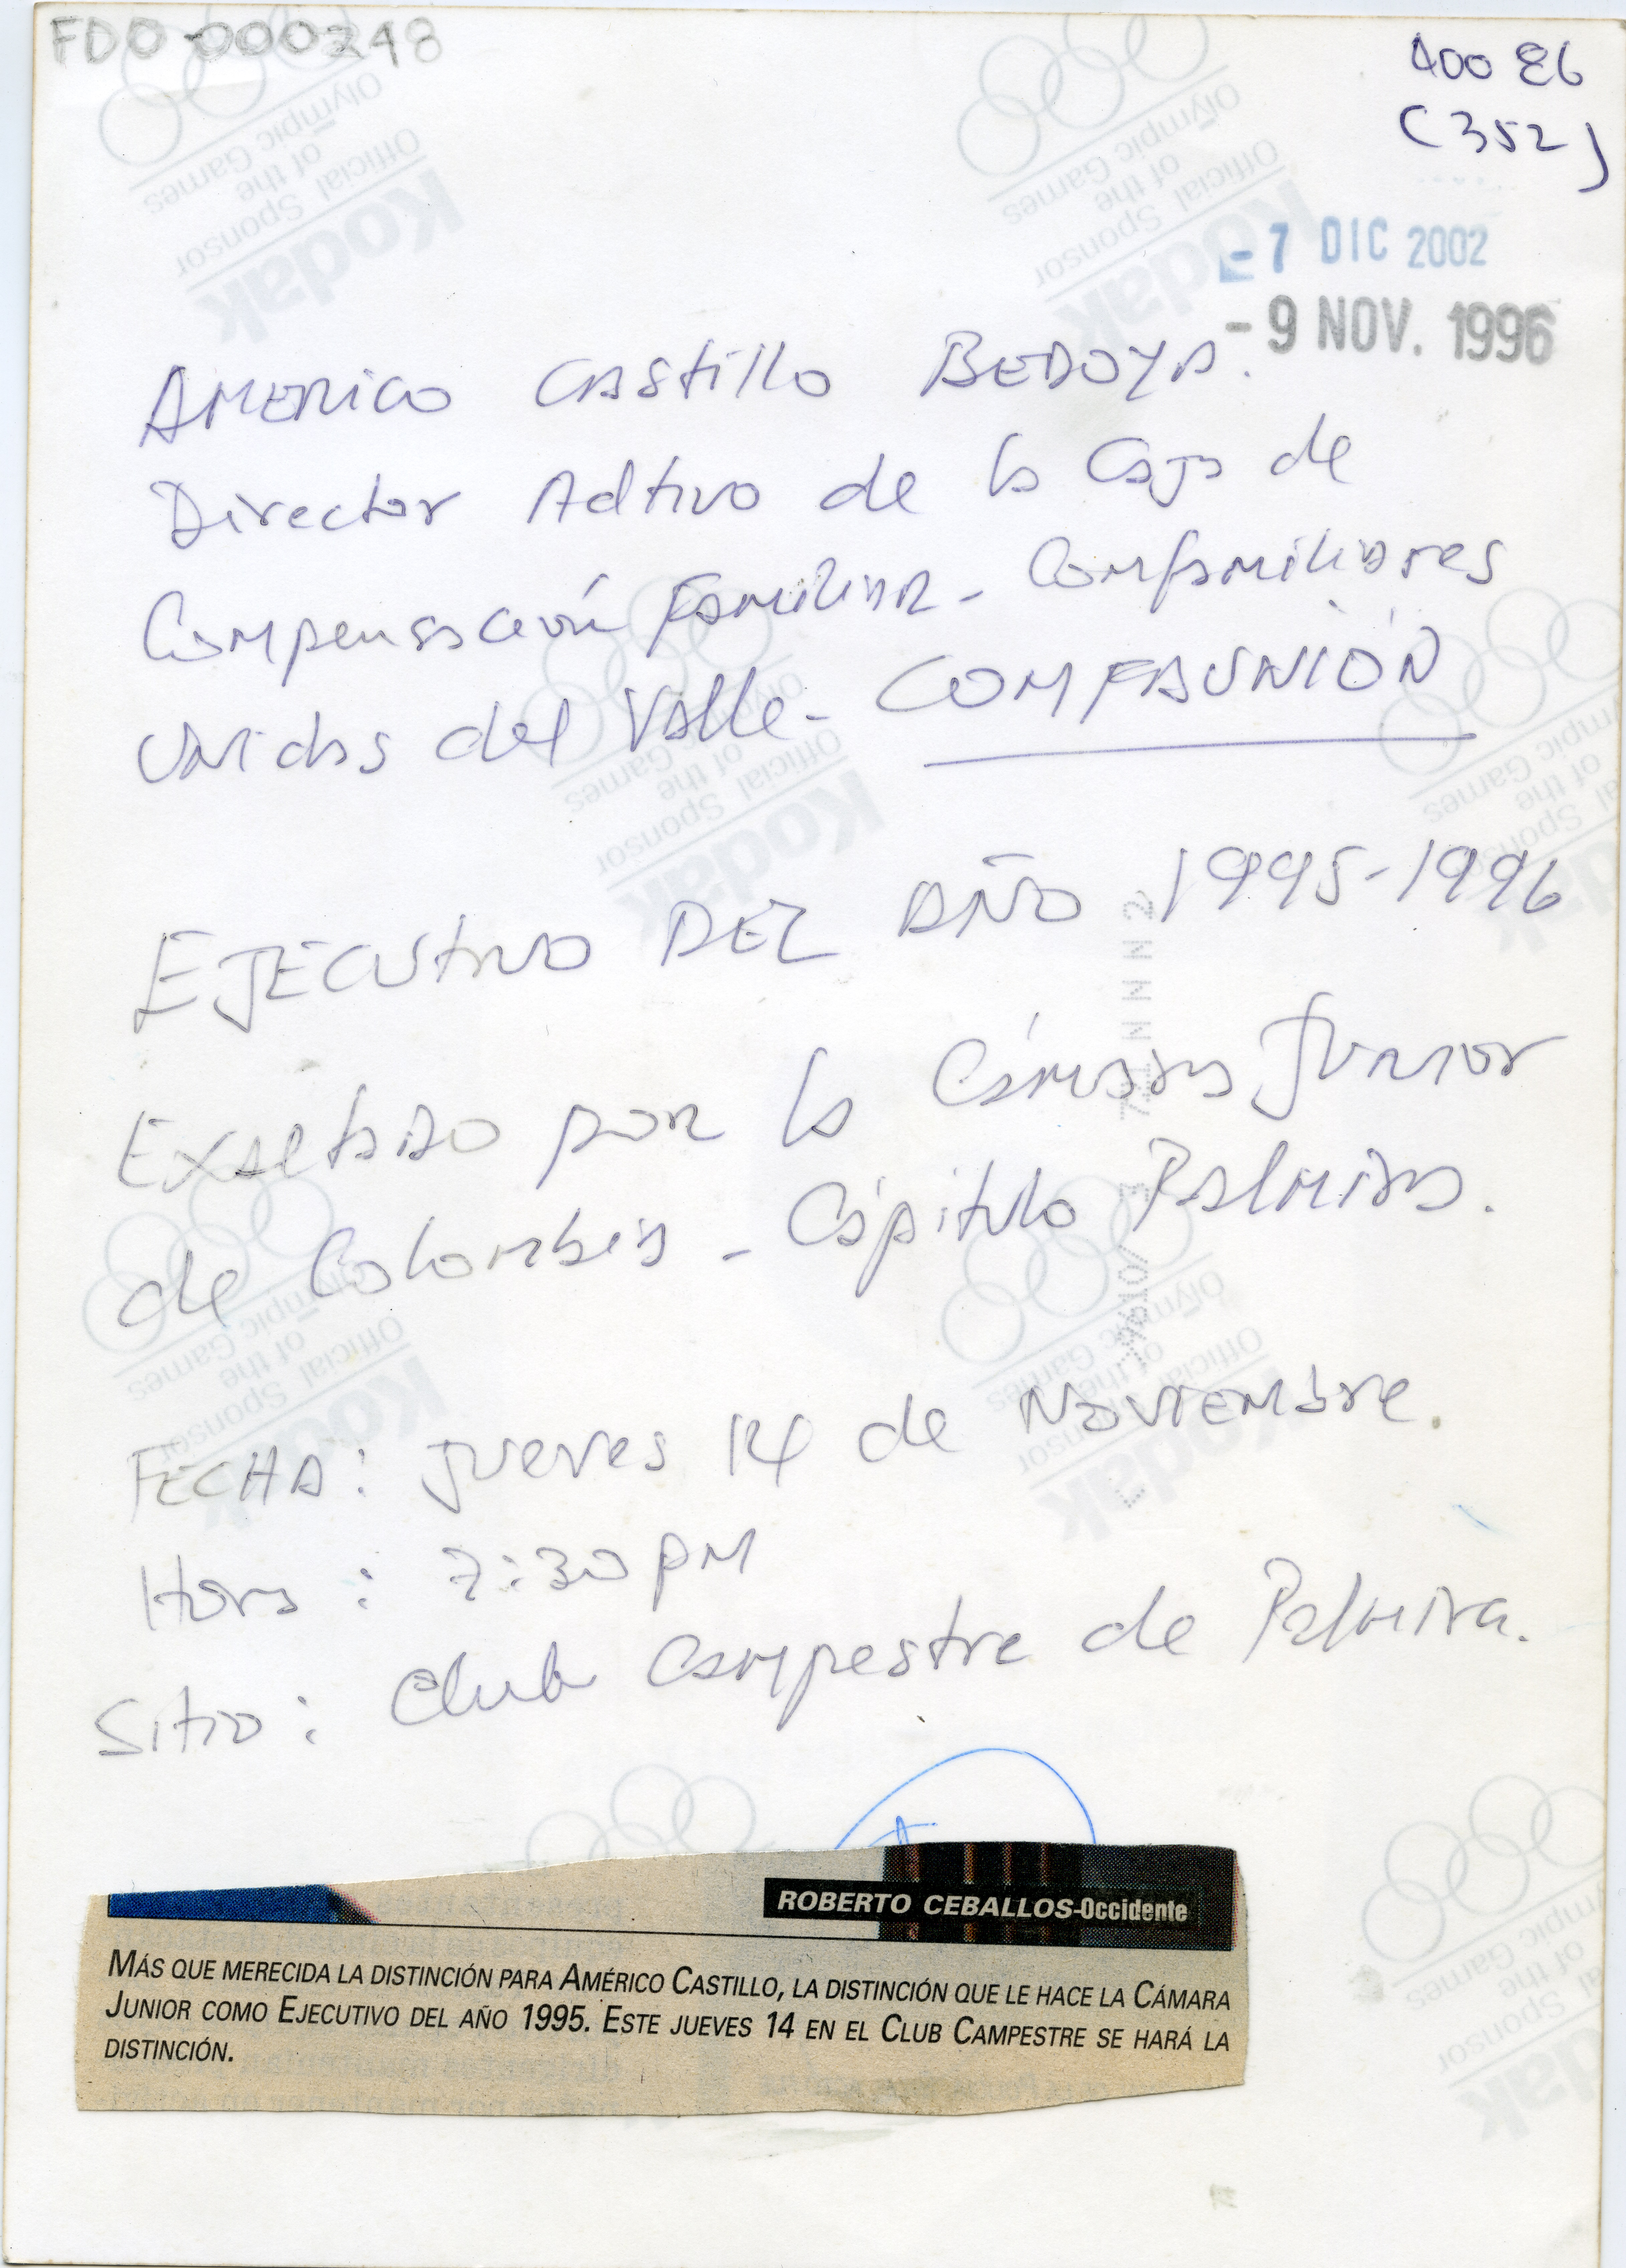 FDO 000248
400 E6
(352)
-7 DIC 2002
-9 NOV. 1996
AMERICO CASTILLO BEDOYA.
Director Adtivo de la Caja de
Compensación Familiar - Comfamiliares
Unidas del Valle - COMFAUNIÓN
EJECUTIVO DEL AÑO 1995-1996
Exaltado por la Cámara Junior
de Colombia - Cápitulo Palmira.
FECHA: jueves 14 de Noviembre.
Hora: 7:30 PM
Sitio: Club Campestre de Palmira.
ROBERTO CEBALLOS-Occidente
MÁS QUE MERECIDA LA DISTINCIÓN PARA AMÉRICO CASTILLO, LA DISTINCIÓN QUE LE HACE LA CÁMARA
JUNIOR COMO EJECUTIVO DEL AÑO 1995. ESTE JUEVES 14 EN EL CLUB CAMPESTRE SE HARÁ LA
DISTINCIÓN.
Kodak
Official Sponsor
of the
Olympic Games